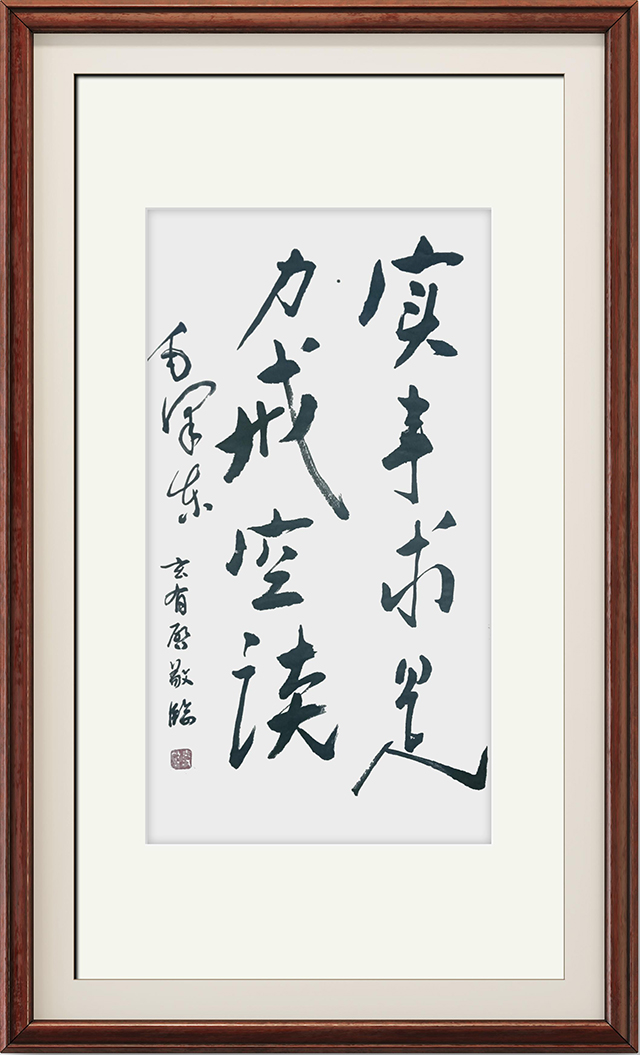 实事求是
力戒空谈
毛泽东
玄有敬临